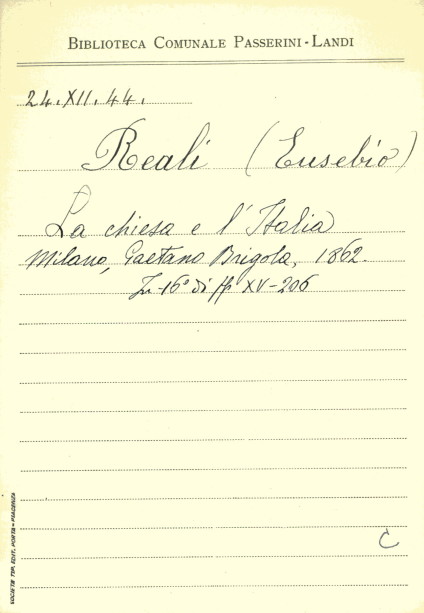 BIBLIOTECA COMUNALE PASSERINI-LANDI
24.XII.44.
Reali (Eusebio)
La chiesa e l'Italia
Milano, Gaetano Brigola, 1862.
In-16° di pp XV-206
C
SOCIETÀ TIP. EDIT. PORTA-PIACENZA